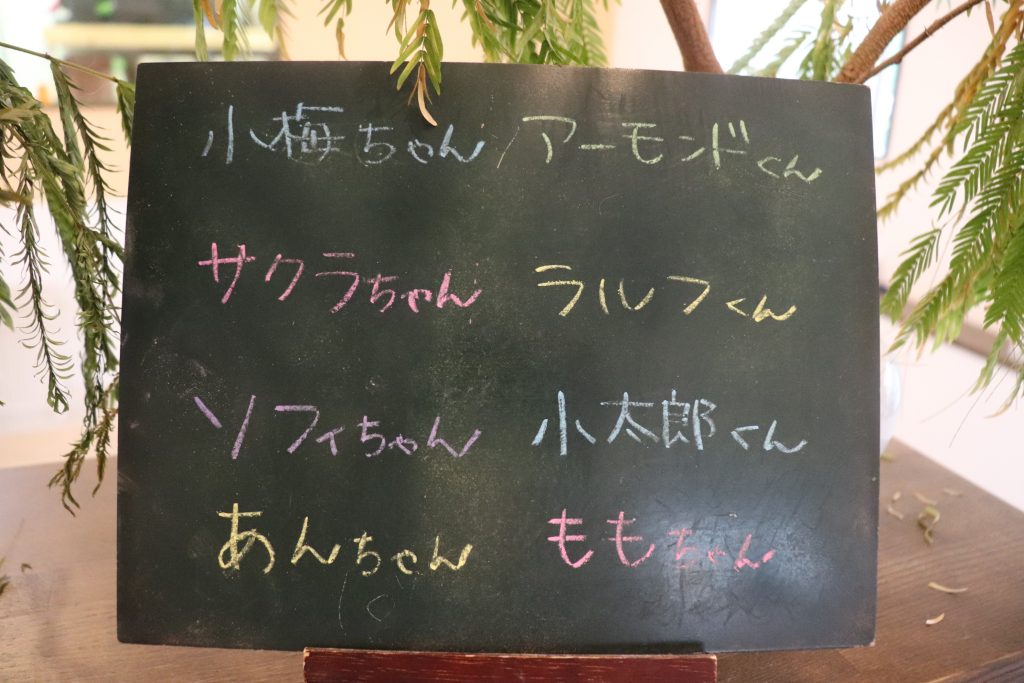 小梅ちゃん アーモンドくん
サクラちゃん ラルフくん
ソフィちゃん 小太郎くん
あんちゃん ももちゃん